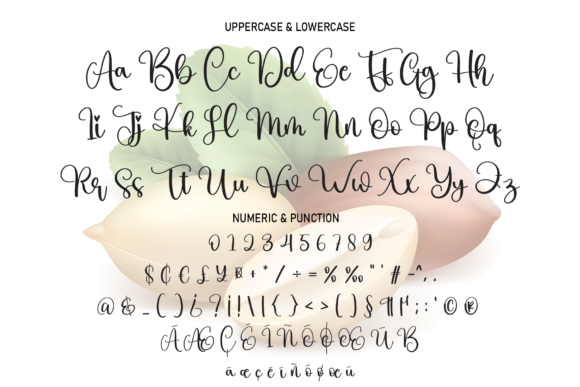 UPPERCASE & LOWERCASE
Aa Bb Cc Dd Ee Ff Gg Hh
Ii Jj Kk Ll Mm Nn Oo Pp Qq
Rr Ss Tt Uu Vv Ww Xx Yy Zz
NUMERIC & PUNCTION
0 1 2 3 4 5 6 7 8 9
$ ₵ € £ ¥ ¤ + * / ÷ = % ‰ " ' # - ^ , .
@ & _ ( ) ¿ ? ¡ ! \ | { } < > ( ) § ¶ ; : ' © ®
Á Æ Ç É Í Ñ Ó Ø Œ Ú ß
á æ ç é í ñ ó ø œ ú